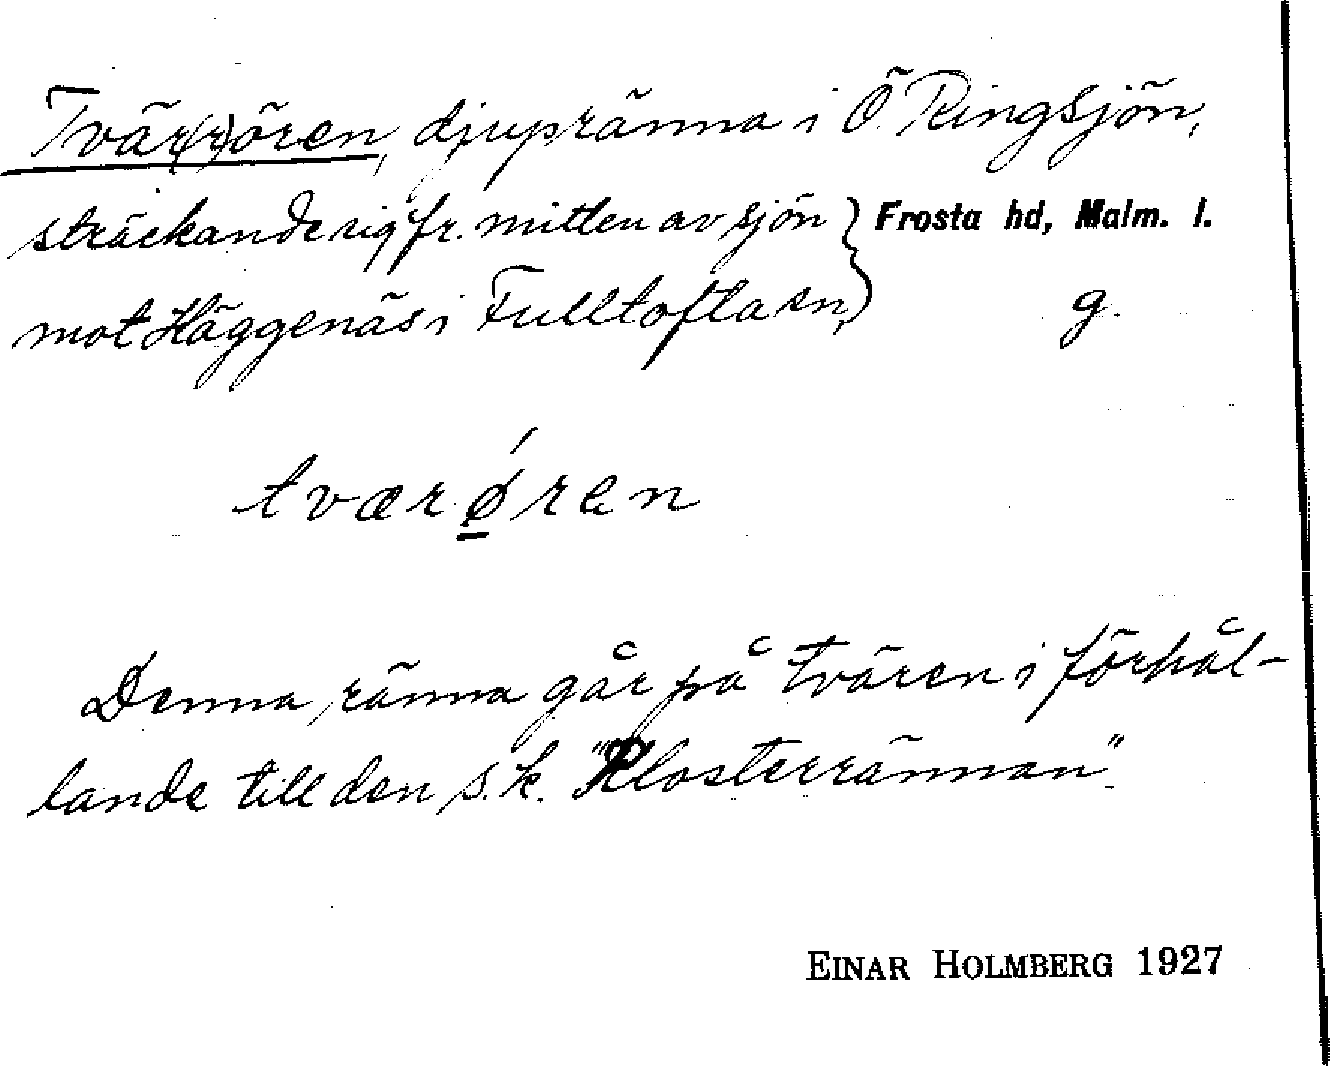 Tvär(r)ören, djupränna i Ö. Ringsjön,
sträckande sig fr. mitten av sjön } Frosta hd, Malm. l.
mot Häggenäs i Fulltofta sn, g.
tværǿren
Denna ränna går på tvären i förhål-
lande till den s.k. "Klosterrännan".
EINAR HOLMBERG 1927